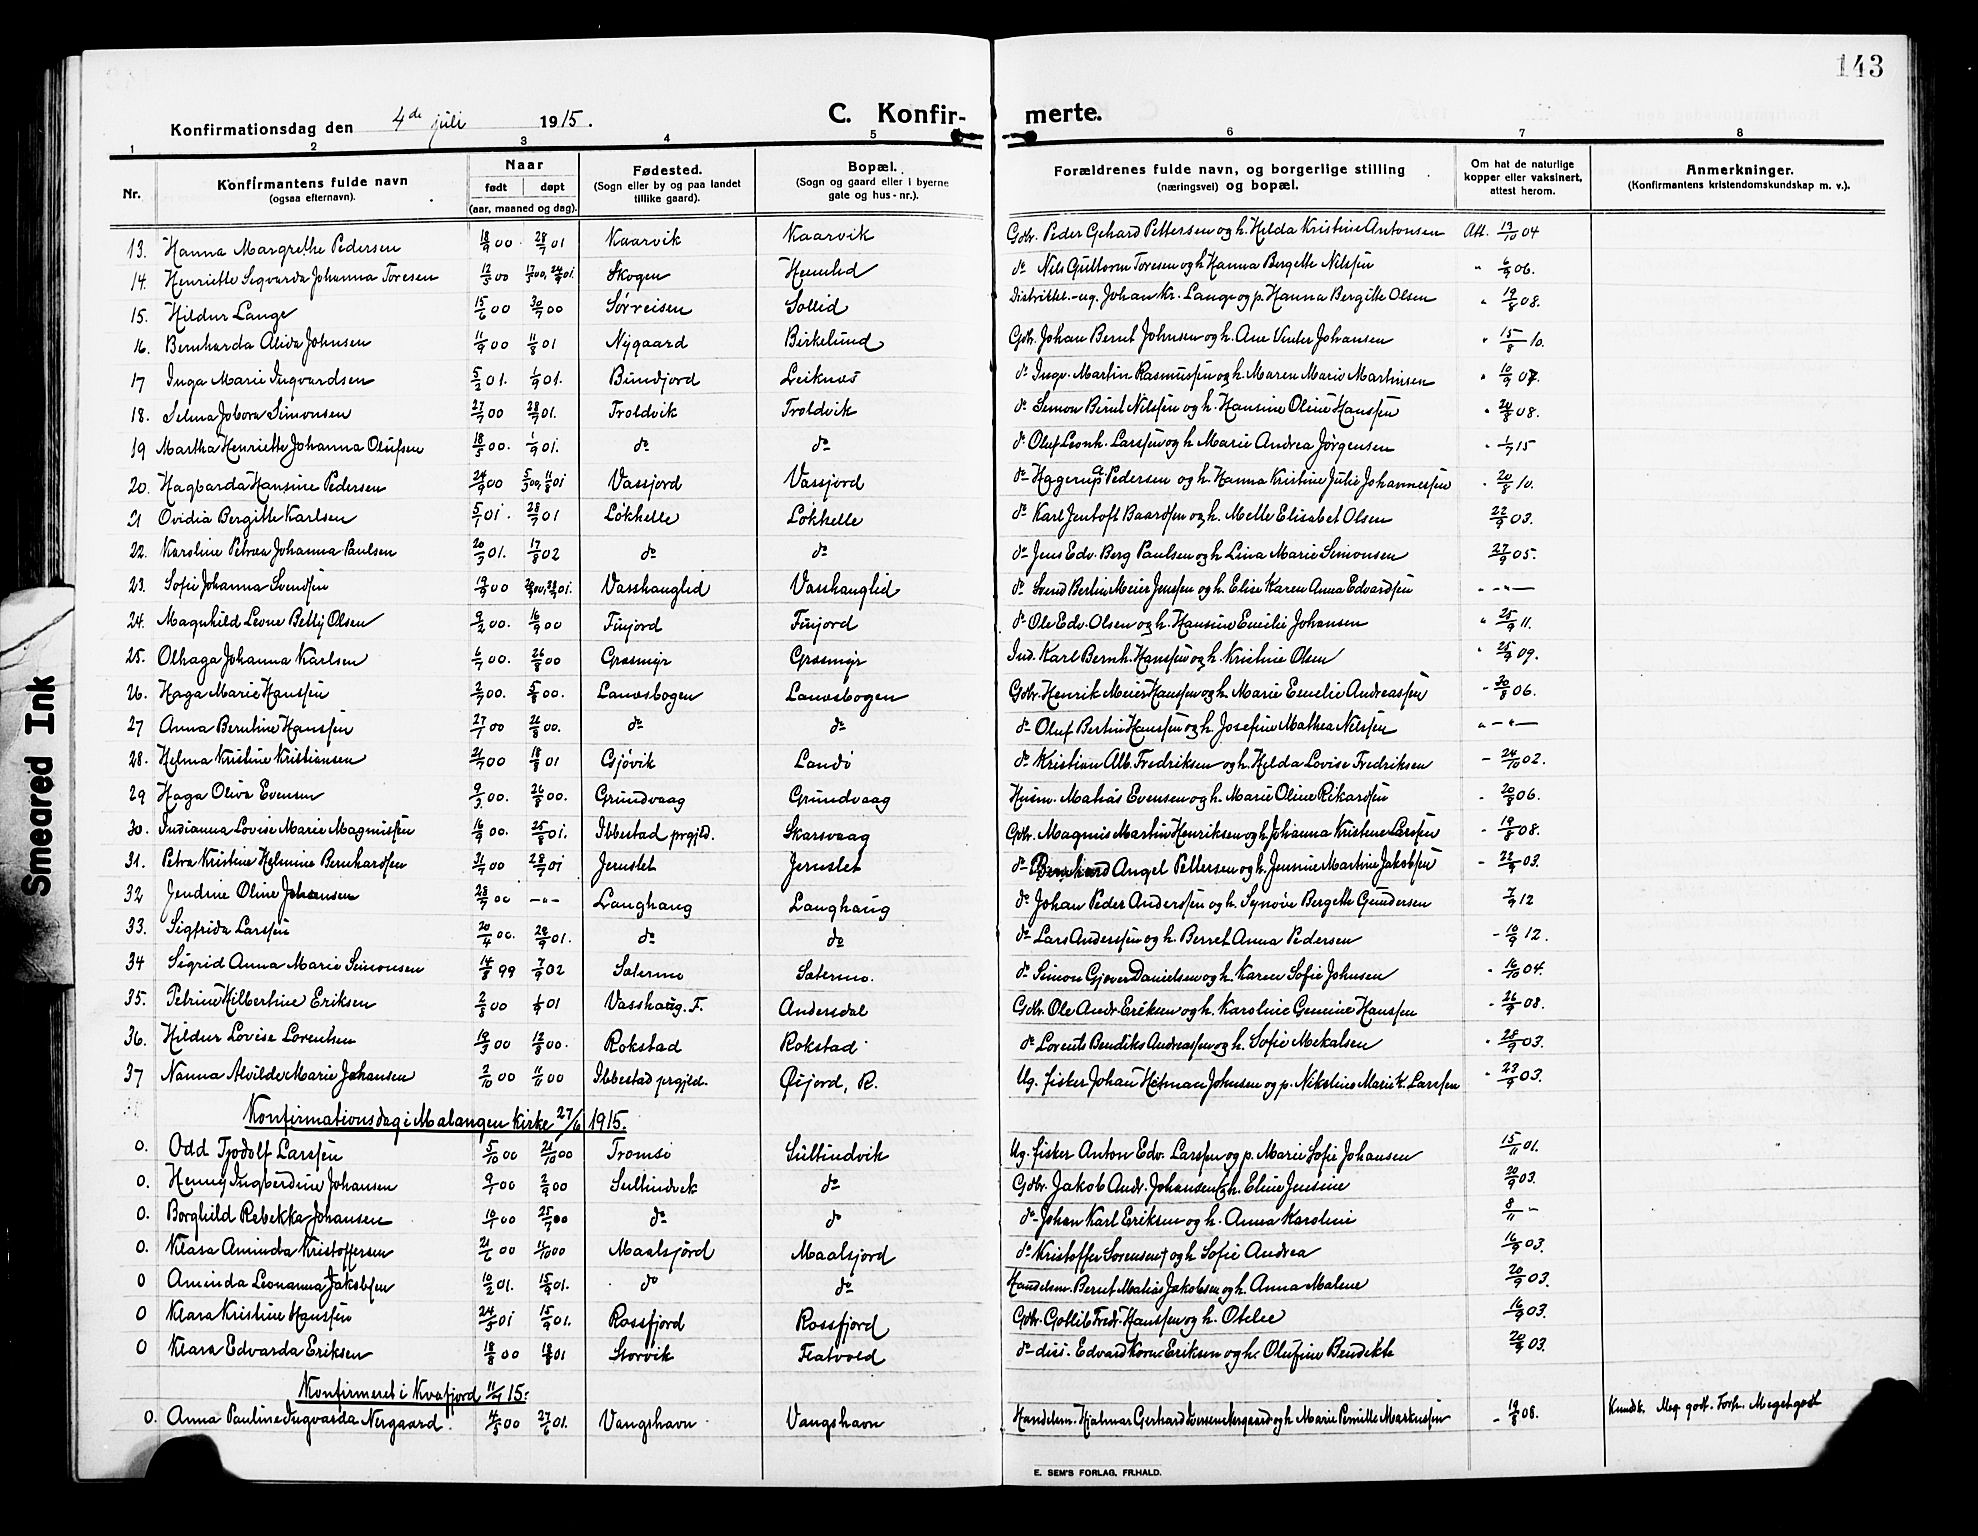 143
C. Konfirmerte.
Konfirmationsdag den 4de juli 1915.
1 2 3 4 5 6 7 8
Nr.
Konfirmantens fulde navn (ogsaa efternavn).
Naar født døpt (aar, maaned og dag).
Fødested. (Sogn eller by og paa landet tillike gaard).
Bopæl. (Sogn og gaard eller i byerne gate og hus-nr.).
Forældrenes fulde navn, og borgerlige stilling (næringsvei) og bopæl.
Om hat de naturlige kopper eller vaksinert, attest herom.
Anmerkninger. (Konfirmantens kristendomskundskap m. v.).
13. Hanna Margrethe Pedersen 18/9 00. 28/7 01 Kaarvik Kaarvik Gdbr. Peder Gehard Pettersen og h. Hilda Kristine Antonsen Att. 13/10 04
14. Henriette Sigvarda Johanna Toresen 12/5 00 Skogen Hemlid do Nils Guttorm Toresen og h. Hanna Bergette Nilssen " 6/9 06.
15. Hildur Lange 15/6 00 30/9 00 Sørreisen Sollid Johan Kr. Lange og p. Hanna Bergitte Olsen " 19/8 08.
16. Bernharda Alida Johnsen 11/9 00 11/8 01 Nygaard Birkelund Gdbr. Johan Bernt Johnsen og h. Ane Johansen " 15/8 10.
17 Inga Marie Ingvardsen 5/2 01. 1/9 01. Bundjord Leiknes do Ingv. Martin Rasmussen og h. Maren Marie Martinsen " 10/9 07.
18. Selma Jobora Simonsen 27/7 00 28/7 01. Troldvik Troldvik do Simon Bernt Nilssen og h. Hansine Oline Hanssen " 24/8 08.
19 Martha Henriette Johanna Olufsen 18/5 00. 1/9 01. do do do Oluf Leonh. Larssen og h Marie Andrea Jørgensen " 1/7 15
20. Hagbarda Hansine Pedersen 24/9 00 5/5 00, 11/8 01 Vassjord Vassjord do Hagerup Pedersen og h. Hanna Kristine Julie Johannessen " 20/8 10.
21 Ovidia Bergitte Karlsen 5/1 01. 28/7 01 Løkhelle Løkhelle do Karl Jentoft Baardsen og h. Mette Elisabet Olsen 22/9 03.
22. Karoline Petrea Johanna Paulsen 20/3 01. 17/8 02 do do do Jens Edv. Berg Paulsen og h Lina Marie Simonsen 27/9 05.
23. Sofie Johanna Svendsen 19/9 00 Vasshauglid Vasshauglid do Svend Bertin Meier Jenssen og h. Elise Karen Anna Edvardsen " - " -
24. Magnhild Leone Betty Olsen 9/2 00. 16/9 00 Finjord Finjord do Ole Edv. Olsen og h. Hansine Emilie Johansen " 25/9 11.
25. Olhaga Johanna Karlsen 6/7 00. 26/8 00 Græsmyr Græsmyr Ind. Karl Bernh. Hanssen og h. Kristine Olsen " 25/9 09.
26. Haga Marie Hanssen 2/7 00. 5/8 00. Landsbogen Landsbogen Gdbr. Henrik Meier Hanssen og h. Marie Emelie Andreassen " 30/8 06.
27 Anna Berntine Hanssen 27/7 00 26/8 00. do do do Oluf Bertin Hanssen og h. Josefine Mathea Nilssen " - " -
28. Helma Kristine Kristiansen 21/7 00 18/8 01 Gjøvik Landø do Kristian Alb. Fredriksen og h. Hilda Lovise Fredriksen - 24/10 02.
29 Haga Olive Evensen 9/3 00. 26/8 00. Grundvaag Grundvaag Husm. Matias Evensen og h. Marie Oline Rikardsen " 20/8 06.
30. Indianna Lovise Marie Magnussen 16/9 00. 25/8 01. Ibbestad prgjld. Skarsvaag Gdbr. Magnus Martin Henriksen og h. Johanna Kristine Larssen - 19/8 08.
31. Petra Kristine Helmine Bernhardsen 31/7 00 28/7 01 Jernslet Jernslet do Bernhard Angel Pettersen og h. Jensine Martine Jakobsen - 22/9 03.
32 Jendine Oline Johansen 28/7 00 - " - Langhaug Langhaug do Johan Peder Anderssen og h. Synøve Bergette Gundersen 7/9 12
33. Sigfrida Larssen 20/4 00. 29/9 01. do do do Lars Anderssen og h. Berret Anna Pedersen - 10/9 12.
34 Sigrid Anna Marie Simonsen 14/8 99 7/9 02 Sætermo Sætermo. do Simon Gjøver Danielsen og h. Karen Sofie Johnsen " 16/10 04.
35. Petrine Hilbertine Eriksen 2/8 00 1/9 01 Vasshaug. F. Andersdal Gdbr. Ole Andr. Eriksen og h. Karoline Gemine Hanssen - 26/9 08.
36. Hildur Lovise Lorentsen 19/3 00 12/8 00. Rokstad Rokstad do Lorents Bendiks Andreassen og h. Sofie Mekalsen " 28/9 03.
37 Nanna Alvilde Marie Johansen 2/10 00 11/11 00 Ibbestad prgjld. Øijord, R. Ug. fisker Johan Hitman Johnsen og p. Nikoline Marie K. Larssen " 23/9 03.
Konfirmationsdag i Malangen Kirke 27/6 1915.
0. Odd Tjodolf Larssen 5/10 00 21/10 00 Tromsø Sultindvik Ug. fisker Anton Edv. Larssen og p. Marie Sofie Johansen 15/11 01.
0. Henny Ingberdine Johansen 9/1 00 2/9 00 Sultindvik do Gdbr. Jakob Andr. Johansen og h. Eline Jensine 20/9 03.
0. Borghild Rebekka Johansen 10/1 00 25/7 00 do do do Johan Karl Eriksen og h. Anna Karoline 8/11 "
0. Klara Aminda Kristoffersen 21/6 00 11/10 00 Maalsjord Maalsjord do Kristoffer Sorensen † og h Sofie Andrea 16/9 03.
0 Aminda Leonanna Jakobsen 10/2 01. 15/9 01. do do Handelsm. Bernt Matias Jakobsen og h. Anna Malene 20/9 03.
0 Klara Kristine Hanssen 24/3 01 15/9 01. Rossfjord Rossfjord Gdbr. Gotlib Fredr. Hanssen og h. Otelie 16/9 03.
0 Klara Edvarda Eriksen 18/8 00 18/8 01 Storvik Flatvold do diss. Edvard Korn. Eriksen og h. Olufine Bendikte 20/9 03.
Konfirmeret i Kvæfjord 11/7 15:
0. Anna Pauline Ingvarda Nergaard. 4/3 00 27/6 01. Vangshavn Vangshavn Handelsm. Hjalmar Gerhard Iversen Nergaard og h Marie Pernille Markussen - 19/8 08. Kundsk. Meg. godt. Forh. Meget godt
E. SEM'S FORLAG, FR.HALD.
Smeared Ink